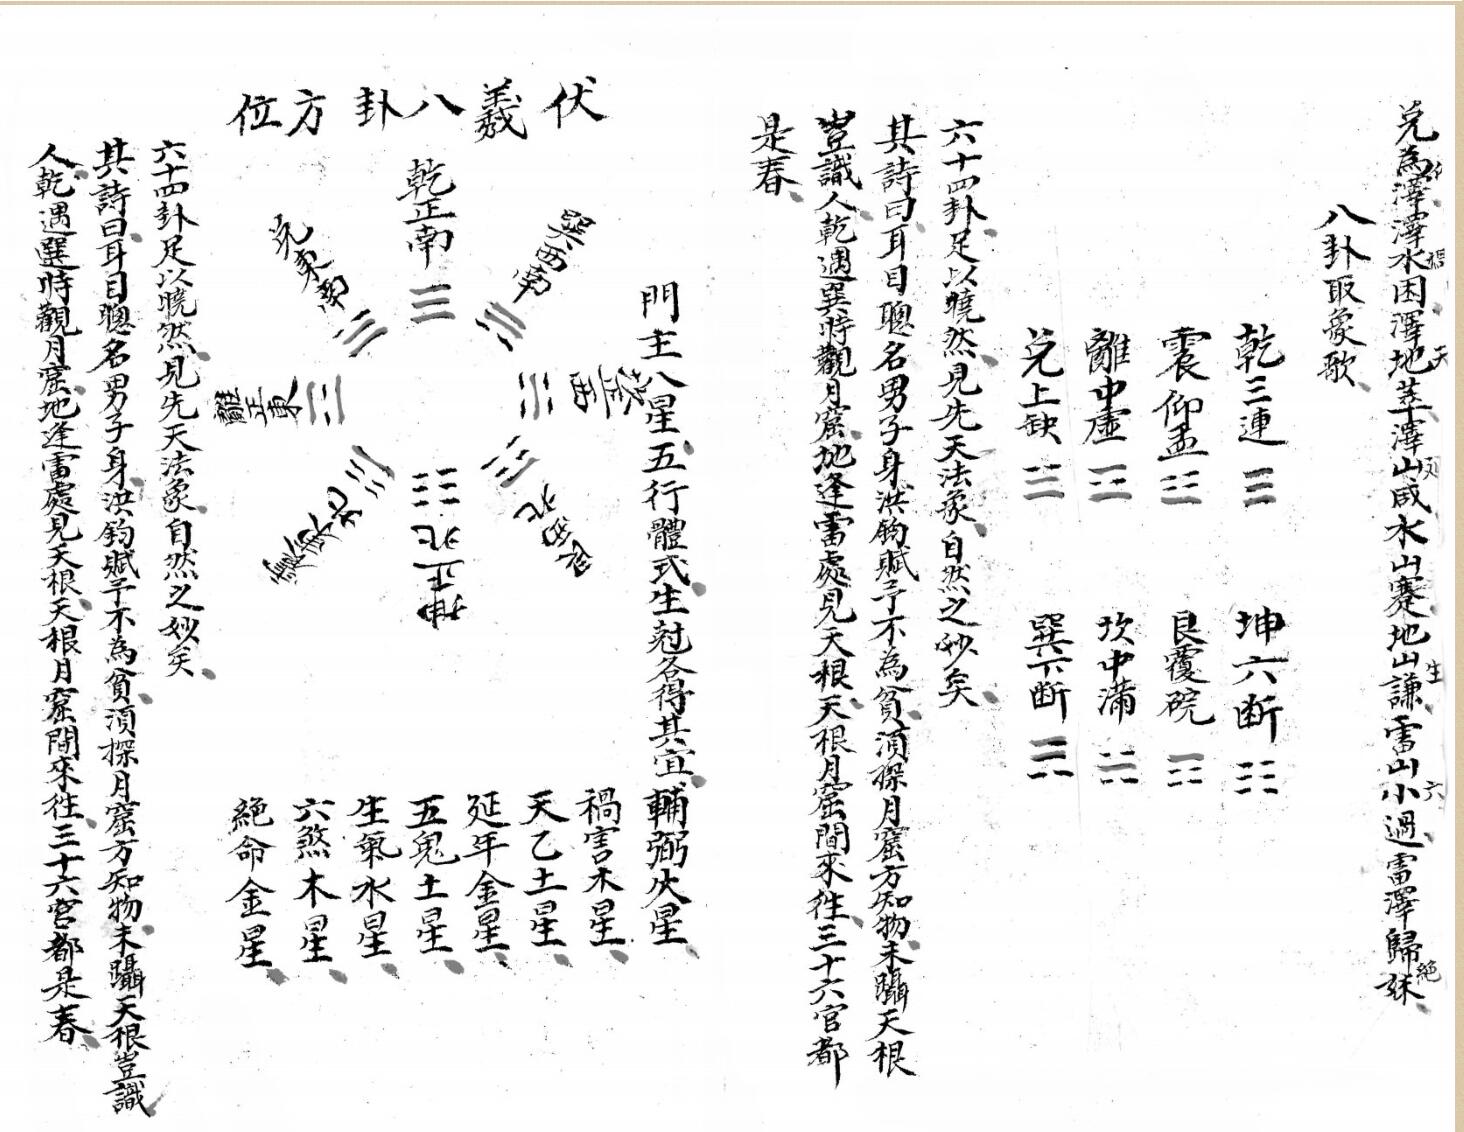 兌為澤澤水困澤地萃澤山咸水山蹇地山謙雷山小過雷澤歸妹
禍
天
生
六
絕
八卦取象歌
乾三連☰
坤六断☷
震仰盂☳
艮覆碗☶
離中虛☲
坎中滿☵
兌上缺☱
巽下断☴
六十四卦足以曉然見先天法象自然之妙矣
其詩曰耳目聰名男子身洪鈞賦予不為貧須探月窟方知物未躡天根
豈識人乾遇巽時觀月窟地逢雷處見天根天根月窟間來往三十六宮都
是春
門主八星五行體式生尅各得其宜輔弼火星
禍害木星
天乙土星
延年金星
五鬼土星
生氣水星
六煞木星
絕命金星
伏羲八卦方位
乾正南☰
巽西南☴
坎正西☵
艮西北☶
坤正北☷
震東北☳
離正東☲
兌東南☱
六十四卦足以曉然見先天法象自然之妙矣
其詩曰耳目聰名男子身洪鈞賦予不為貧須探月窟方知物未躡天根豈識
人乾遇巽時觀月窟地逢雷處見天根天根月窟間來往三十六宮都是春